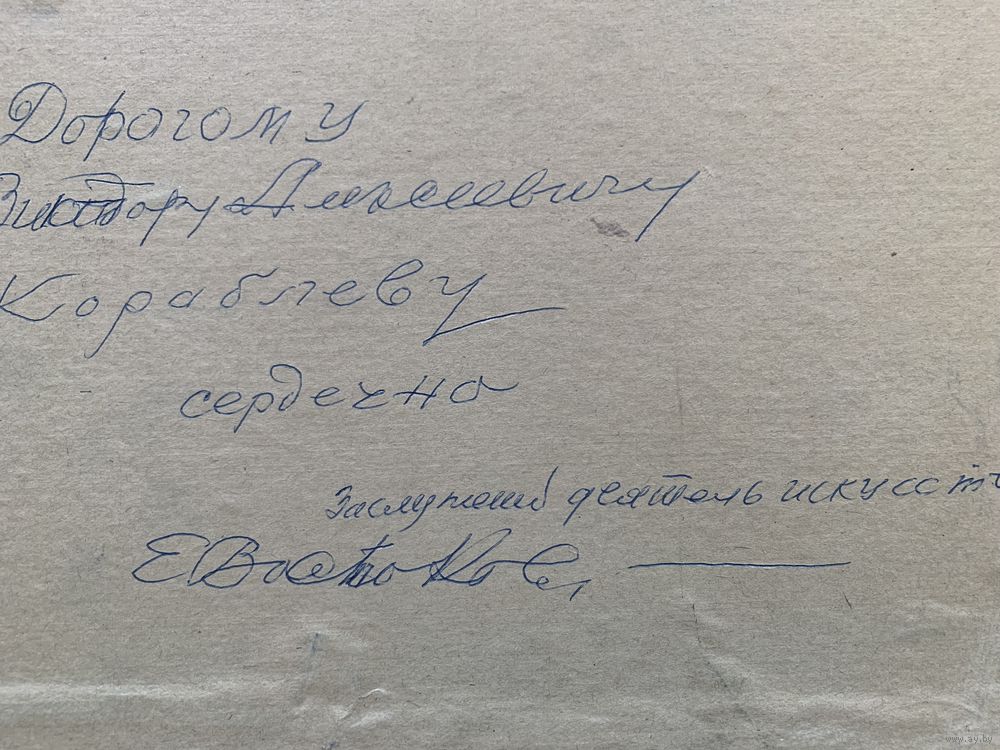 Дорогому
Виктору Алексеевичу
Кораблеву
сердечно
Заслужений деятель искусств
ЕВостоков
www.ay.by